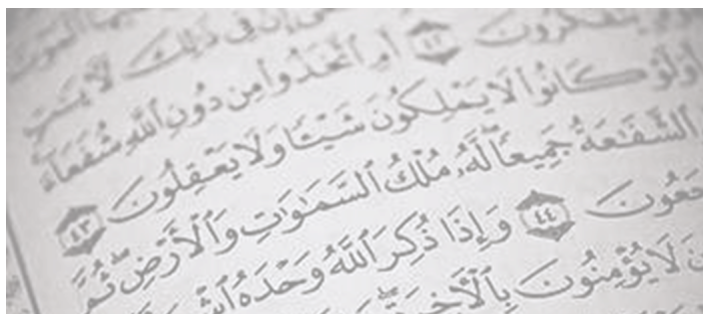 ٱلْمَوْتَ
إِنَّ فِى ذَٰلِكَ لَءَايَٰتٍ
يَتَفَكَّرُونَ ٤٢ أَمِ ٱتَّخَذُوا۟ مِن دُونِ ٱللَّهِ شُفَعَآءَ
أَوَلَوْ كَانُوا۟ لَا يَمْلِكُونَ شَيْـًٔا وَلَا يَعْقِلُونَ ٤٣
ٱلشَّفَٰعَةُ جَمِيعًا لَّهُۥ مُلْكُ ٱلسَّمَٰوَٰتِ وَٱلْأَرْضِ ثُمَّ
جَعُونَ ٤٤ وَإِذَا ذُكِرَ ٱللَّهُ وَحْدَهُ
لَا يُؤْمِنُونَ بِٱلْءَاخِرَةِ